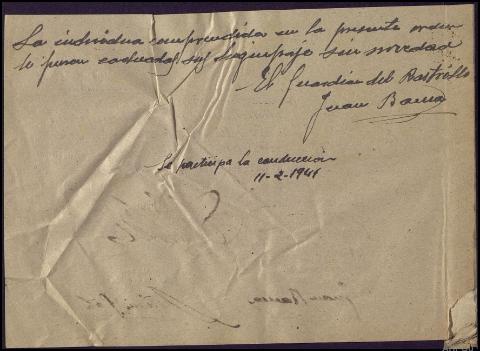 La individua comprendida en la presente orden
le fueron cacheadas sus equipaje sin novedad
El Guardian del Rastrillo
Juan Baena
Se participa la conducción
11-2-1941
Juan Baena